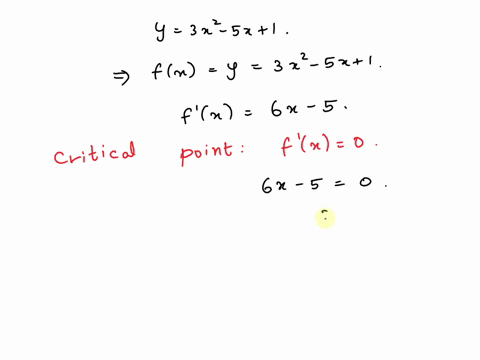 y = 3x² - 5x + 1.
⇒ f(x) = y = 3x² - 5x + 1.
f'(x) = 6x - 5.
Critical point: f'(x) = 0.
6x - 5 = 0.